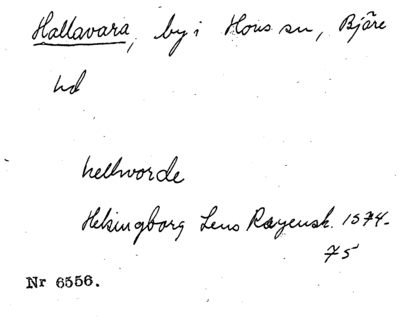 Hallavara, by i Hovs sn, Bjäre
hd
hellworde
Helsingborg Lens Rægensk. 1574-
75
Nr 6556.